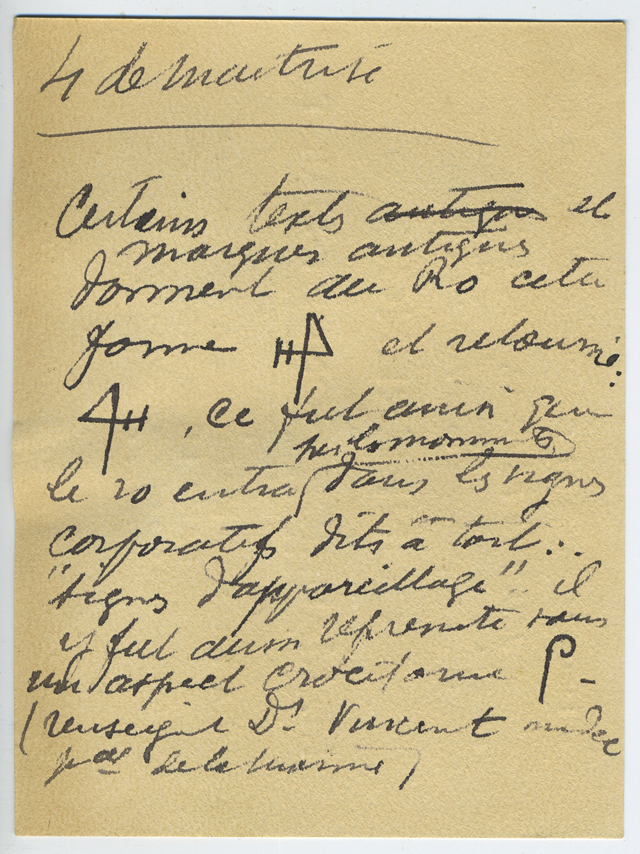 4 de maitrise
Certains texts antiques et
marques antiques
donnent au Ro cette
forme et retourné:
, ce fut ainsi que
sur les monuments
le ro entra dans les signes
corporatifs dits à tort :.
"signes d'appareillage" .. il
y fut aussi représenté sous
un aspect crociforme P -
(renseigt Dr Vincent
de la marine)